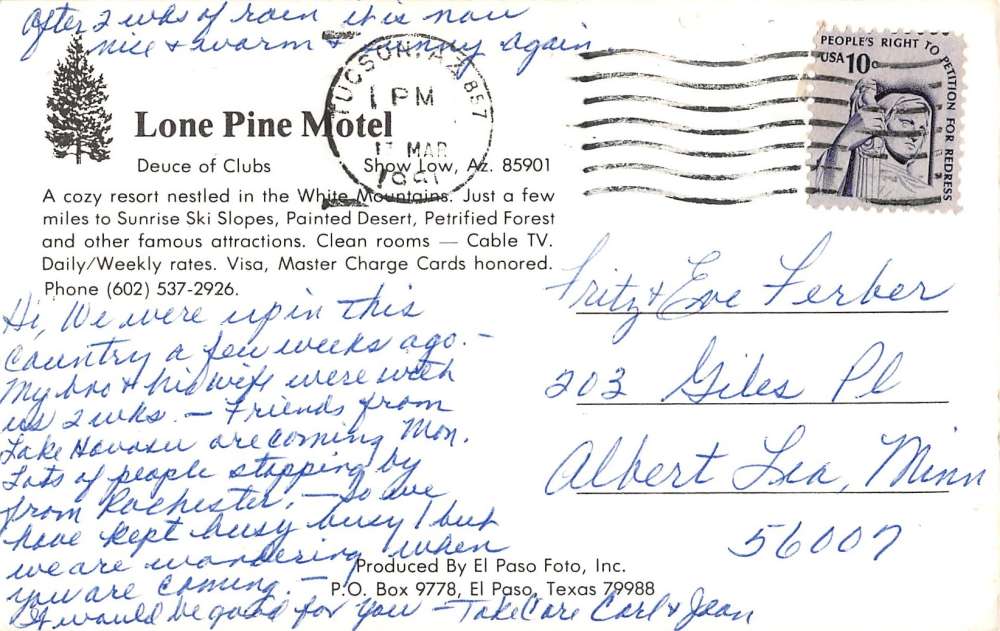 After 2 wks of rain it is now
nice & warm & sunny again.
Lone Pine Motel
Deuce of Clubs Show Low, Az. 85901
A cozy resort nestled in the White Mountains. Just a few
miles to Sunrise Ski Slopes, Painted Desert, Petrified Forest
and other famous attractions. Clean rooms — Cable TV.
Daily/Weekly rates. Visa, Master Charge Cards honored.
Phone (602) 537-2926.
Hi, We were up in this
country a few weeks ago. -
My bro & his wife were with
us 2 wks. - Friends from
Lake Havasu are coming Mon.
Lots of people stopping by
from Rochester. - So we
have kept busy busy! but
we are wondering when
you are coming. -
It would be good for you - Take Care Carl & Jean
TUCSON, AZ 857
1 PM
17 MAR
1981
PEOPLE'S RIGHT TO PETITION FOR REDRESS
USA 10c
Fritz & Eve Ferber
203 Giles Pl
Albert Lea, Minn
56007
Produced By El Paso Foto, Inc.
P.O. Box 9778, El Paso, Texas 79988